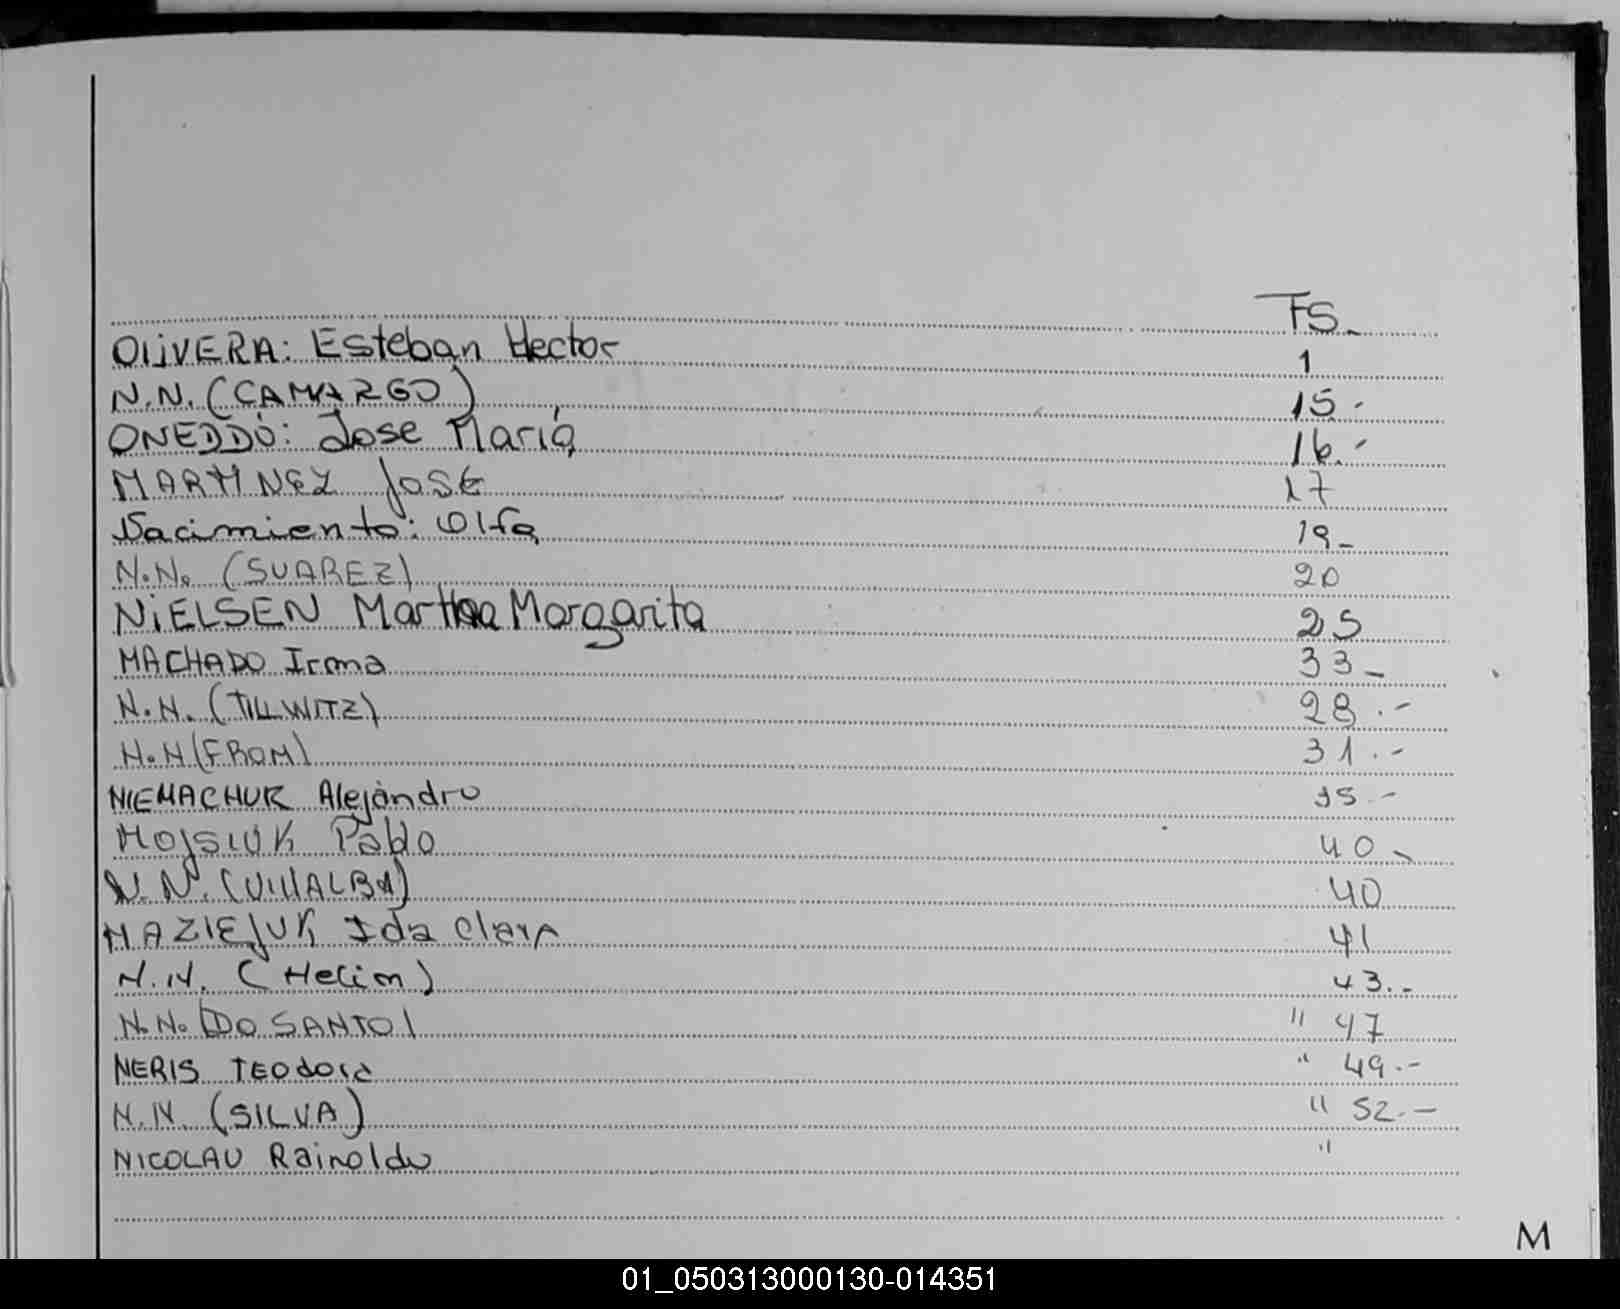 FS_
OLIVERA: Esteban Hector 1
N.N. (CAMARGO) 15.-
ONEDDÓ: Jose María 16.-
MARTINEZ José 17
Nacimiento: Olfa 19_
N.N. (SUAREZ) 20
NIELSEN Martha Margarita 25
MACHADO Irma 33_
N.N. (TILLWITZ) 28.-
N.N (FROM) 31.-
NIEMACHUK Alejandro 35.-
MOJSIUK Pablo 40_
N.N. (VILLALBA) 40
MAZIEJUK Ida Clara 41
N.N. (Helim) 43.-
N.N. (DO SANTO) " 47
NERIS TEodora " 49.-
N.N. (SILVA) " 52.-
NICOLAU Rainoldo "
M
01_050313000130-014351